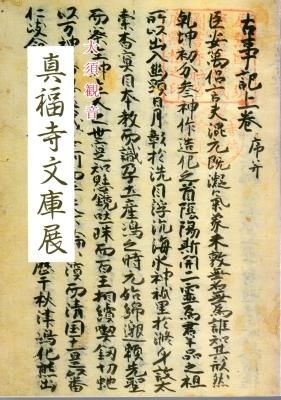 古事記上卷 序并
臣安萬侶言夫混元既凝氣象未敦無名無為誰知其形然
乾坤初分参神作造化之首陰陽斯開二靈為群品之祖
所以出入幽顯日月彰於洗目浮沉海水神祇呈於滌身故太
素杳冥因本教而識孕土產嶋之時元始綿邈頼先聖
而察生神立人之世寔知懸鏡吐珠而百王相續喫釼切蛇
以万神
而清国土是以番
仁岐命
歷千秋津嶋化熊出
大須観音
真福寺文庫展